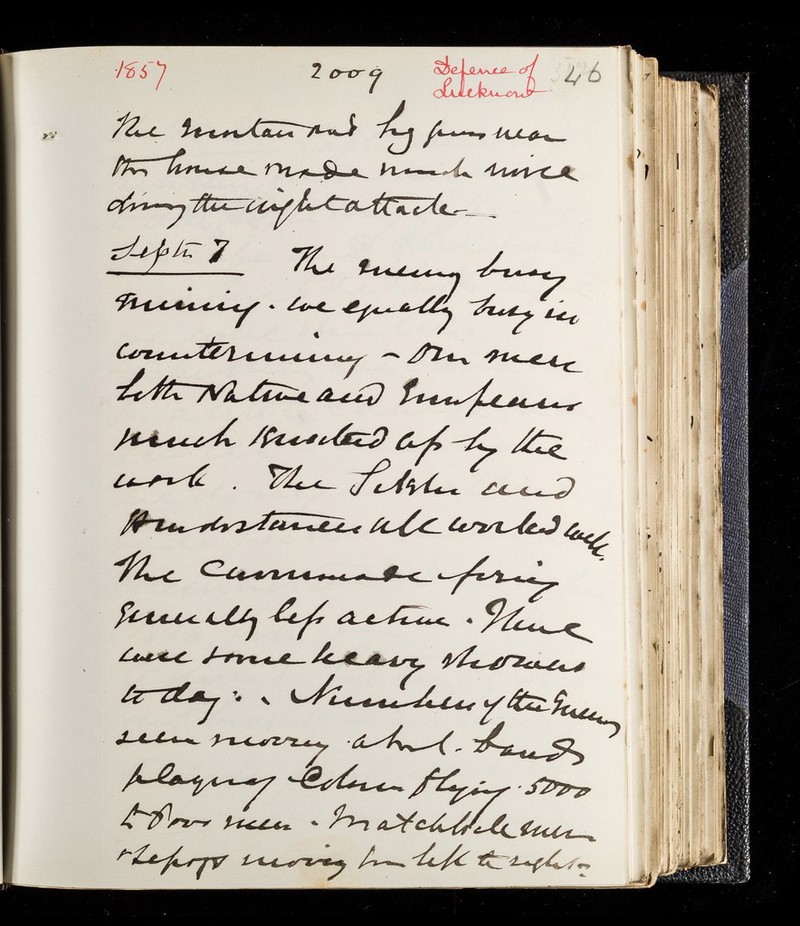 1857 2009 Defence of Lucknow 46
The mortar and big guns near
the house made much noise
during the night attack -
Septr 7 The enemy busy
mining - we equally busy in
countermining - Our men
both Native and Europeans
much knocked up by the
work. The Sikhs and
Hindostanees all worked well.
The Cannonade firing
generally less active. There
were some heavy showers
to day. Numbers of the Enemy
seen moving about. bands
playing Colours flying. 5000
to 8000 men - Matchlock men
& Sepoys moving from left to right -